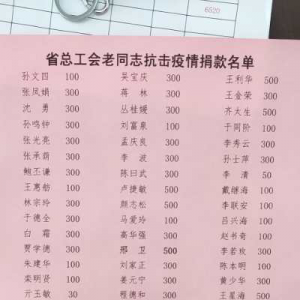 6520
省总工会老同志抗击疫情捐款名单
孙文四 100 吴宝庆 300 王利华 500
张凤娟 300 蒋林 300 王金荣 300
沈勇 300 丛桂媛 300 齐太生 500
孙鸣钟 300 刘富泉 100 于同阶 100
张光亮 300 孟庆良 300 李秀云 300
张承霸 300 李波 300 孙士萍 300
鲍玉谦 300 陈曰武 300 李清 50
王惠舫 100 卢捷敏 500 戴继海 100
林宗玲 300 颜志松 500 李联安 100
于德全 300 马爱玲 100 吕兴海 100
白霜 300 高华强 300 赵书奇 100
贾学德 300 邢卫 500 李若玫 300
朱建华 100 刘家正 300 陈本明 100
栾明贤 100 姜元宁 300 黄少华 300
亓玉敏 30 程德和 300 王星海 500